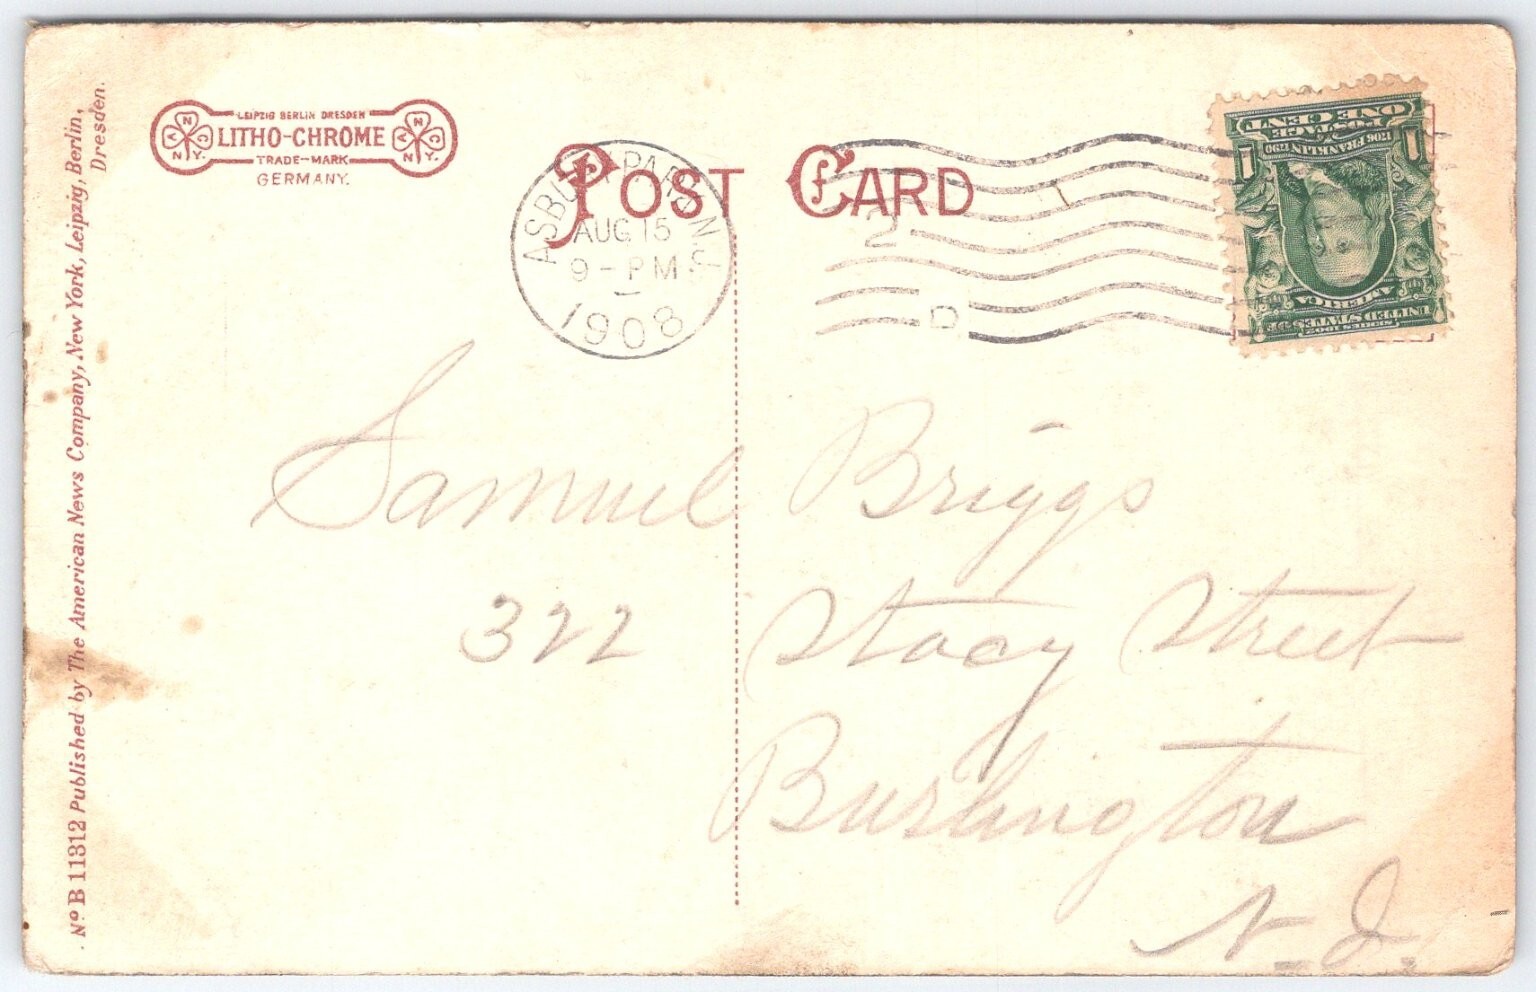 LEIPZIG BERLIN DRESDEN
LITHO-CHROME
TRADE-MARK
GERMANY.
POST CARD
ASBURY PARK, N.J.
AUG 15
9-PM
1908
2
D
1
ONE CENT
POSTAGE
1706 FRANKLIN 1790
1 1
AMERICA
UNITED STATES OF
SERIES 1902
Samuel Briggs
322 Stacy Street
Burlington
N.J.
Nº B 11312 Published by The American News Company, New York, Leipzig, Berlin,
Dresden.